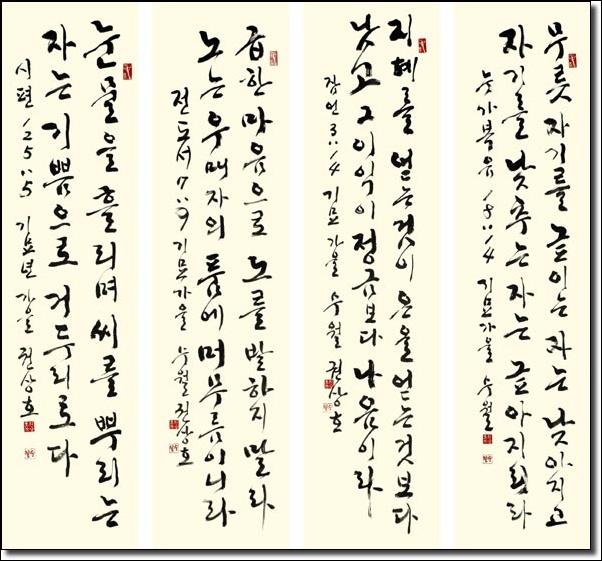 무릇 자기를 높이는 자는 낮아지고
자기를 낮추는 자는 높아지리라
누가복음 18:14 기묘가을 수월
지혜를 얻는것이 은을 얻는것보다
낫고 그 이익이 정금보다 나음이라
잠언 3:14 기묘 가을 수월 권상호
급한 마음으로 노를 발하지 말라
노는 우매자의 품에 머무름이니라
전도서 7:9 기묘가을 수월 권상호
눈물을 흘리며 씨를 뿌리는
자는 기쁨으로 거두리로다
시편 125:5 기묘년 가을 권상호